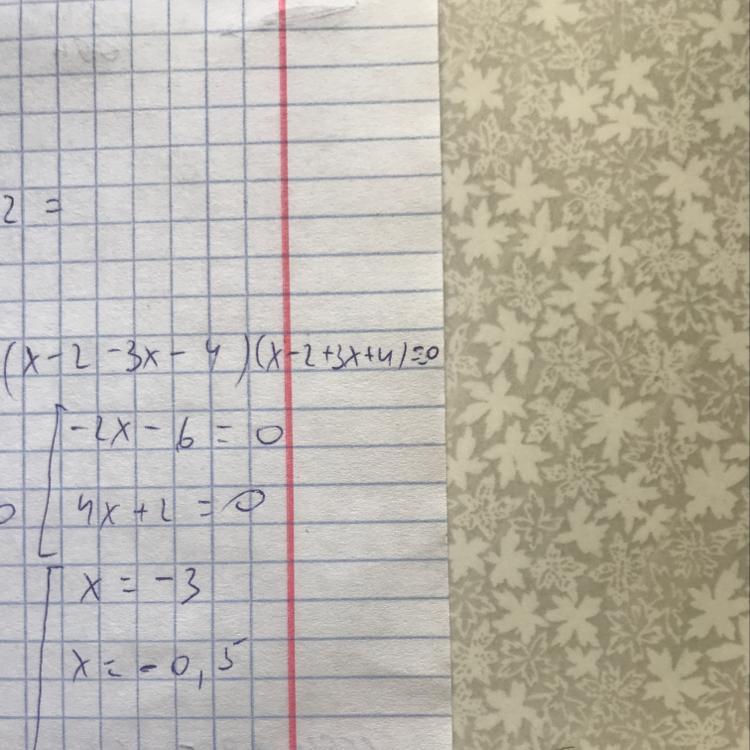 2 =
(x-2-3x-4)(x-2+3x+4)=0
-2x-6=0
0
4x+2=0
x=-3
x=-0,5